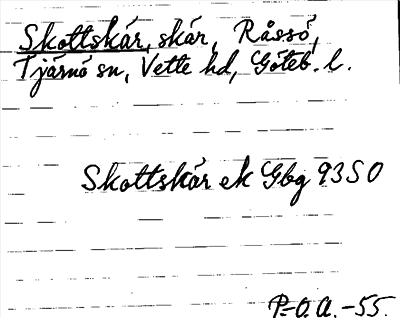 Skottskär, skär, Råssö,
Tjärnö sn, Vette hd, Göteb. l.
Skottskär ek Gbg 93 SO
P-O. A. -55.